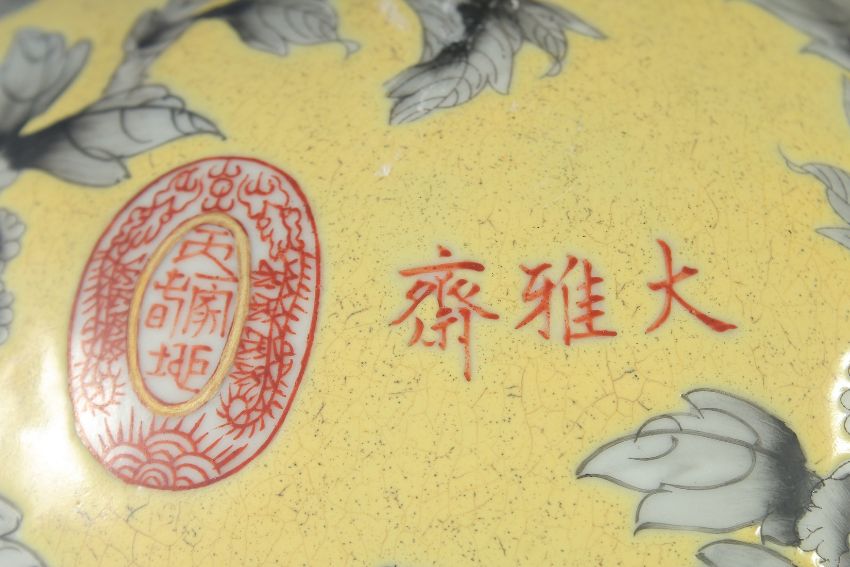 大雅齋
天地一家春